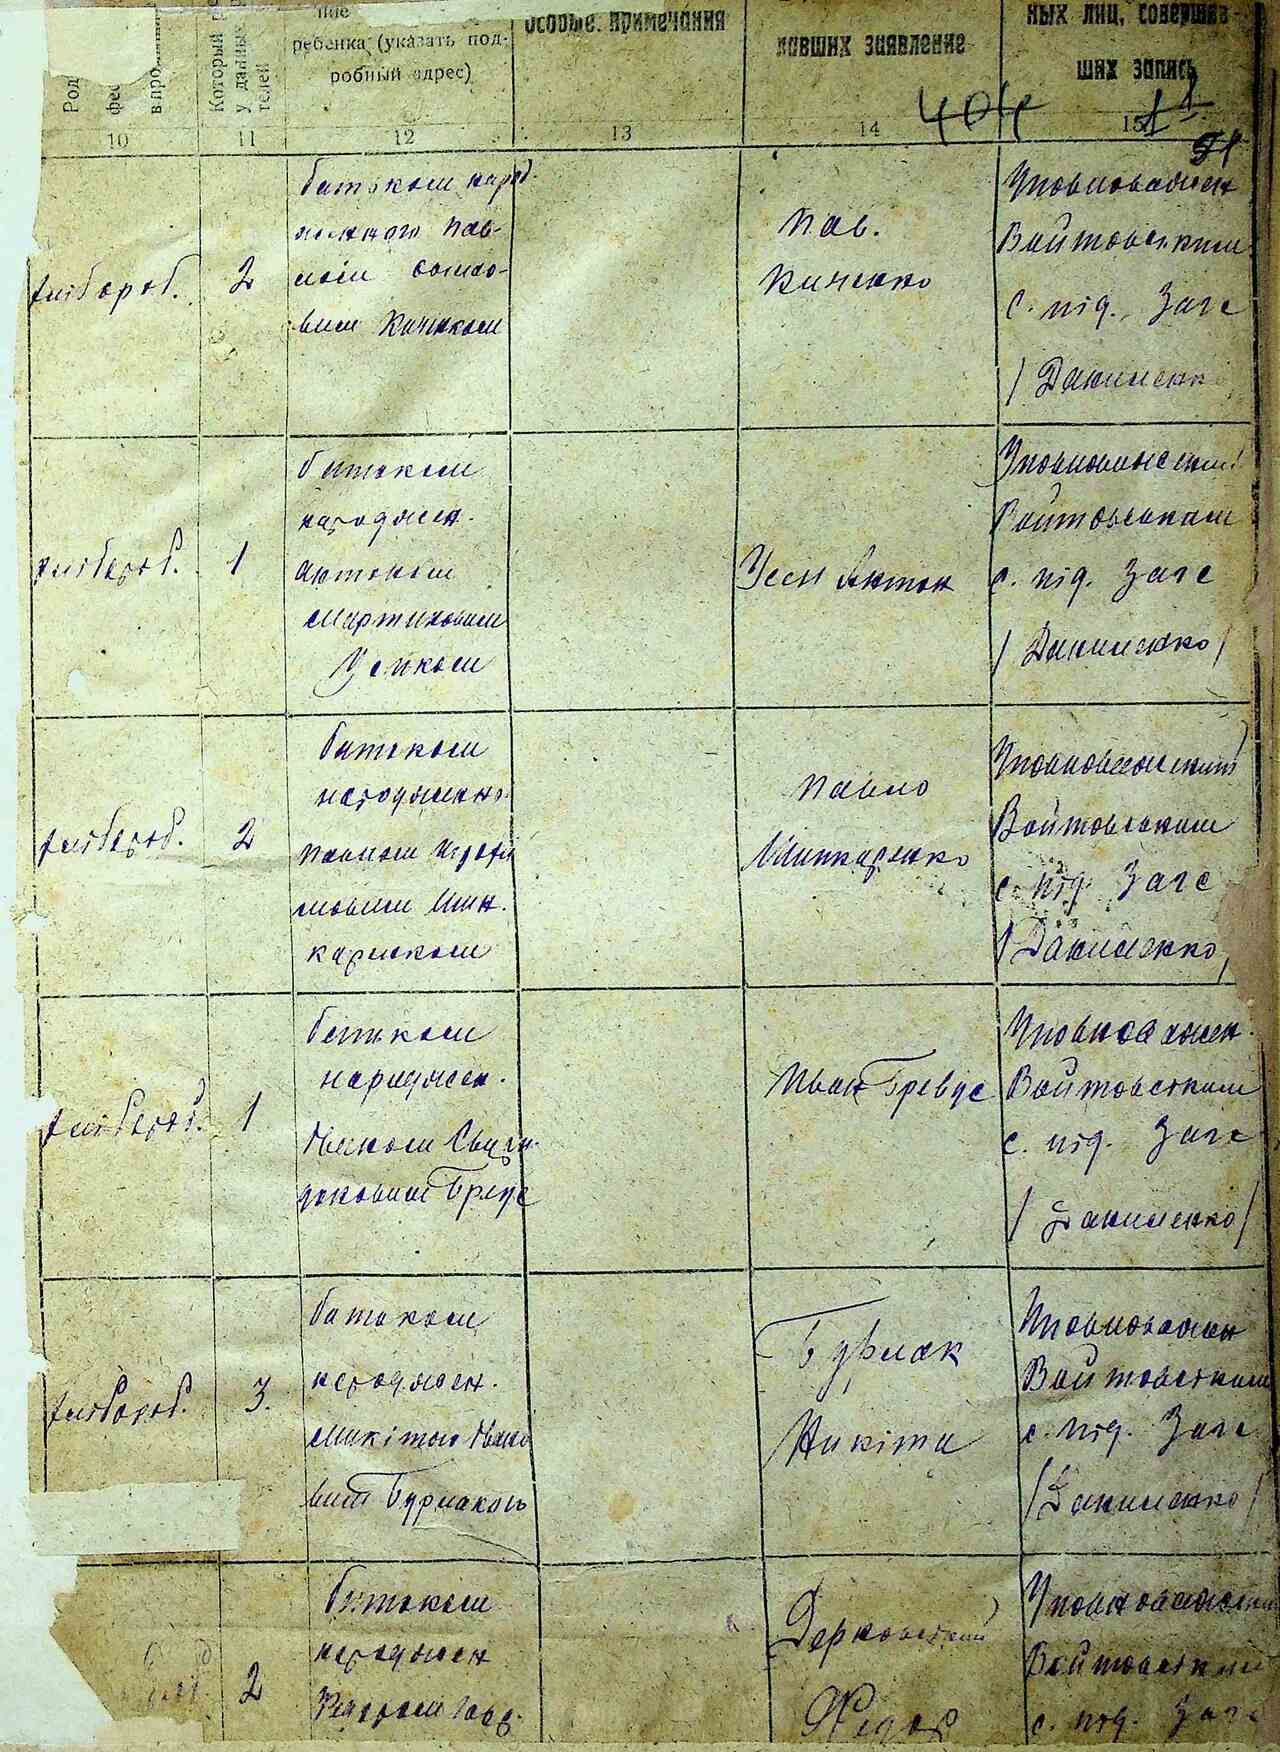 Род
фес
в про
Который
у данных
телей
ние
ребенка (указать под-
робный адрес)
Особые. примечания
лавших заявление
ных лиц, соверши-
ших запись
10
11
12
13
14
15
404
11
51
хлібороб.
2
батьком народ.
женного Пав-
лом
вим Киченком
Пав.
Киченко
Уповноважен
Войтовським
с. під. Загс
/Даниленко
хлібороб.
1
батьком
народжен.
Антоном
Мартиновим
Усиком
Усен Антон
Уповноважений
Войтовським
с. під. Загс
/Даниленко/
хлібороб.
2
батьком
народженно
Павлом Трофи
мовим Шин.
карюком
Павло
Шинкаренко
Уповноважений
Войтовським
с. під. Загс
/Даниленко/
хлібороб.
1
батьком
народжен.
Иваном Свири-
доновим Бревус
Иван Бревус
Уповноважен.
Войтовським
с. під. Загс
/Даниленко/
хлібороб.
3.
батьком
народжен.
Микітою Ивано
вим Бурлаком
Бурлак
Никіта
Уповноважен
Войтовським
с. під. Загс
/Даниленко/
2
батьком
народжен
Федором
Дерковский
Федор
Уповноважений
Войтовським
с. під. Загс